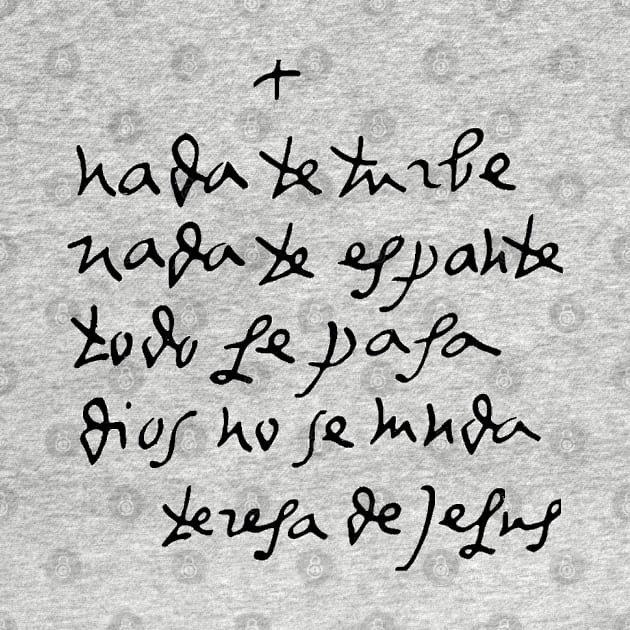 +
nada te turbe
nada te espante
todo se pasa
dios no se muda
teresa de Jesus